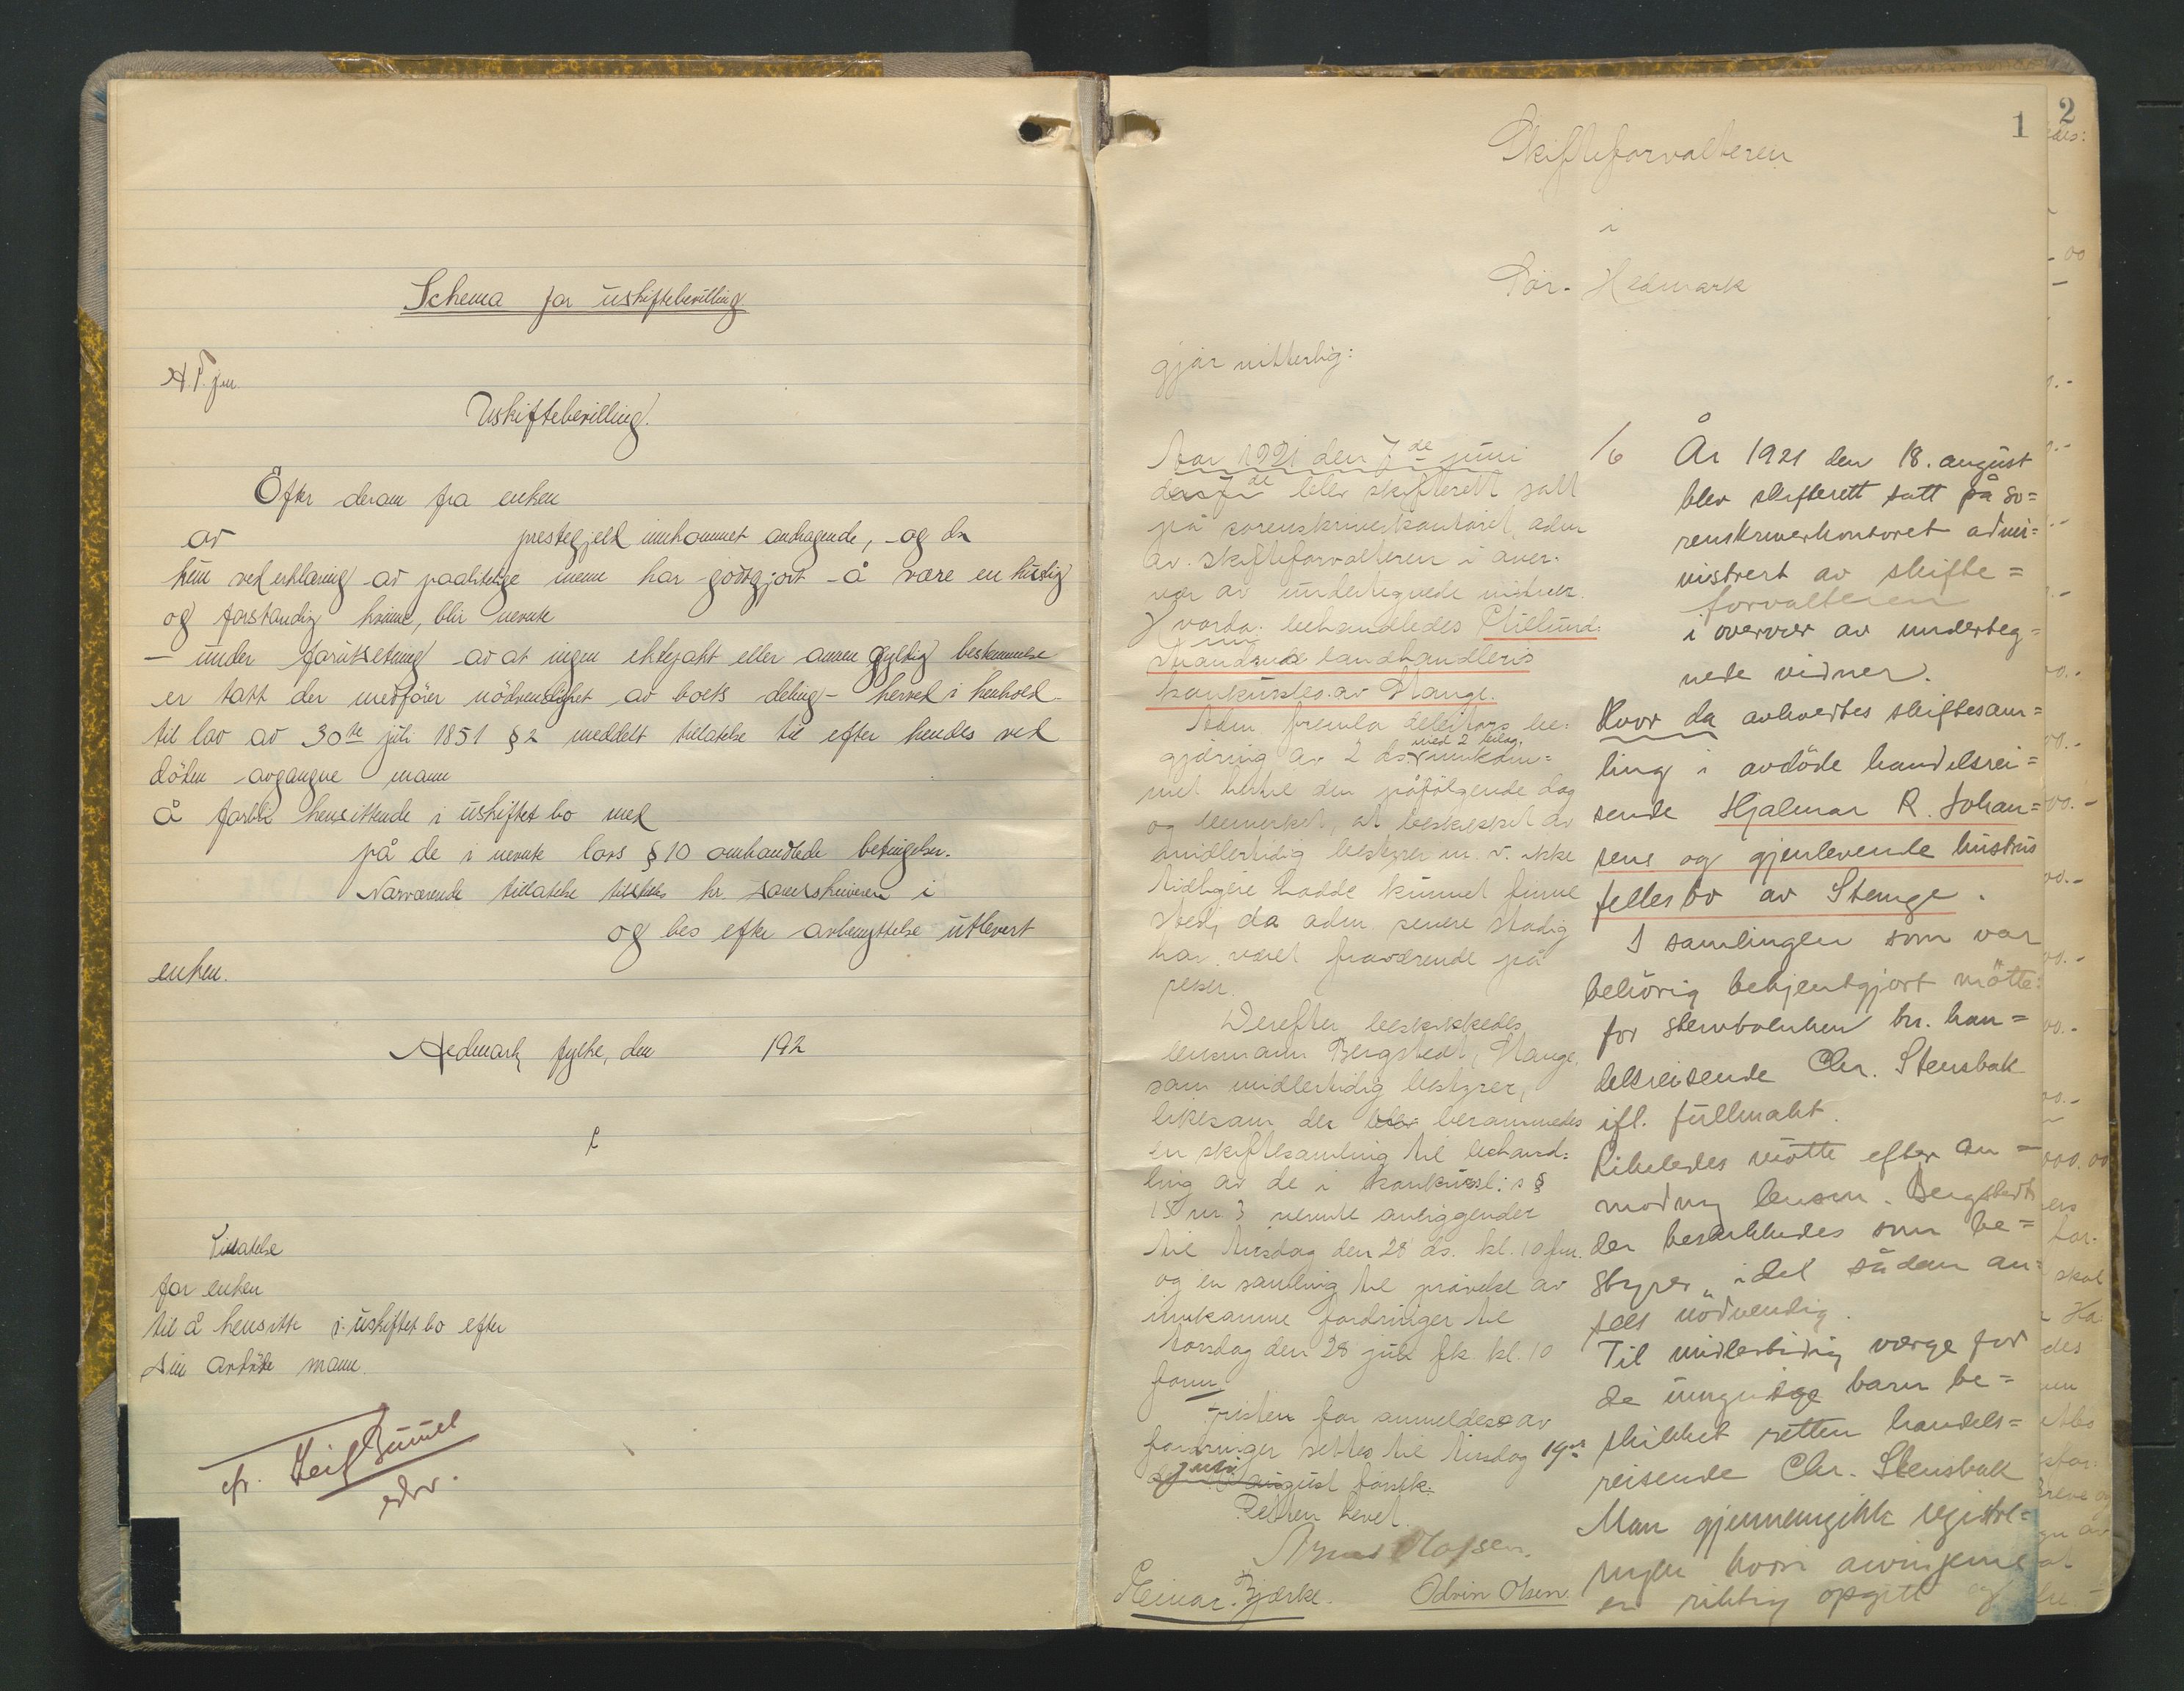 Schema for uskiftebevilling.
Uskiftebevilling.
Efter derom fra enken
av prestegjeld innkommet andragende, - og da
hun ved erklæring av paalitelige menn har godtgjort - å være en husklig
og forstandig kvinne, blir nevnte
- under forutsetning av at ingen ektepakt eller annen gyldig bestemmelse
er tatt der medfører nödvendighet av boets deling - herved i henhold
til lov av 30te juli 1851 § 2 meddelt tillatelse til efter hendes ved
döden avgangne mann
å forbli hensittende i uskiftet bo med
på de i nevnte lovs § 10 omhandlede betingelser.
Nærværende tillatelse tilstilles hr. sorenskriveren i
og bes efter avbenyttelse utlevert
enken.
Hedmark fylke, den 192
Tillatelse
for enken
til å hensitte i uskiftet bo efter
sin avdöde mann.
1
2
Skifteforvalteren
i
Sör-Hedmark
gjör vitterlig:
Aar 1921 den 7de juni
blev skifterett satt
på sorenskriverkontoret, adm
av skifteforvalteren i over-
vær av undertegnede vidner.
Hvorda behandledes
landhandleris
konkursbo av Stange.
Adm fremla debitors be-
gjæring av 2 ds. med 2 bilag, innkom-
met hertil den påfölgende dag
og bemerket, at beskikket av
midlertidig bestyrer m. v. ikke
tidligere hadde kunnet finne
sted, da adm senere stadig
har været fraværende på
reiser.
Derefter beskikkedes
lensmann Bergstedt, Stange,
som midlertidig bestyrer,
likesom der blev berammedes
en skiftesamling til behand-
ling av de i konkursl:s §
15 nr. 3 nevnte anliggender
til tirsdag den 28 ds. kl. 10 fm.
og en samling til prövelse av
innkomne fordringer til
torsdag den 28 juli fk. kl. 10
form
Fristen for anmeldelse av
fordringer settes til tirsdag 19de
juli august förstk.
Retten hevet.
Einar Bjerke. Odvin Olsen.
1/6 År 1921 den 18. august
blev skifterett satt på so=
renskriverkontoret admi=
nistrert av skifte=
forvalteren
i overvær av underteg=
nede vidner.
Hvor da avholdtes skiftesam=
ling i avdöde handelsrei=
sende Hjalmar R. Johan=
sens og gjenlevende hustrus
fellesbo av Stange.
I samlingen som var
behörig bekjentgjort mötte:
for stervboenken hr. han=
delsreisende Chr. Stensbak
ifl. fullmakt.
Likeledes mötte efter an=
modning lensm. Bergstedt
der beskikkedes som be=
styrer, idet sådan an=
sees nödvendig.
Til midlertidig værge for
de umyndige barn be=
skikket retten handels=
reisende Chr. Stensbak
Man gjennemgikk registre=
ringen hvori
er riktig opgitt og